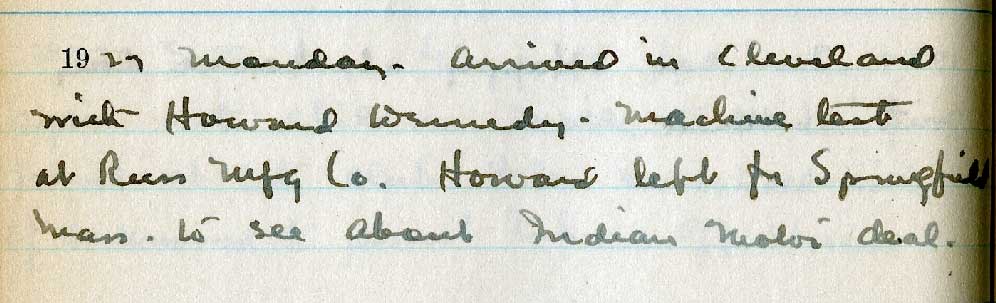 1927 Monday. Arrived in Cleveland
with Howard Kennedy. Machine test
at Russ Mfg Co. Howard left for Springfield
Mass. to see about Indian Motor deal.